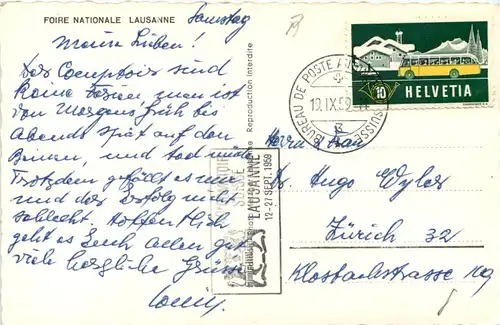 FOIRE NATIONALE LAUSANNE
Samstag
Meine Lieben!
Das Comptoir sind
keine Ferien man ist
von Morgens früh bis
Abends spät auf den
Beinen, und tod müde
Trotzdem gefällt es mir
und der Erfolg nicht
schlecht. Hoffentlich
geht es Euch allen gut
viele herzliche Grüsse
Reproduction interdite
10
HELVETIA
BUREAU DE POSTE AUTOMOBILE SUISSE
10.IX.59
COMPTOIR SUISSE
LAUSANNE
12-27 SEPT. 1959
Herrn & Frau
Hugo Wyler
Zürich 32
Klosbachstrasse 109